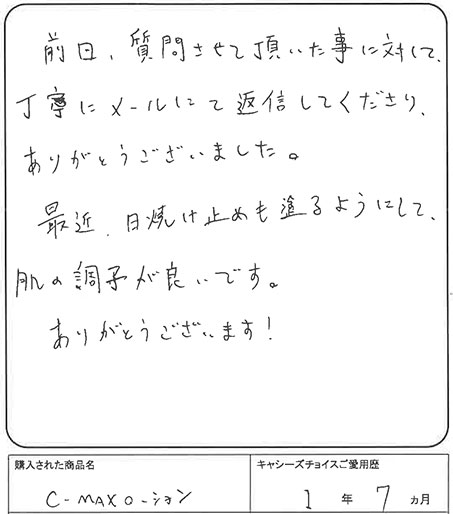 前日、質問させて頂いた事に対して、
丁寧にメールにて返信してくださり、
ありがとうございました。
最近、日焼け止めも塗るようにして、
肌の調子が良いです。
ありがとうございます！
購入された商品名
キャシーズチョイスご愛用歴
C-MAXローション
1年7ヵ月